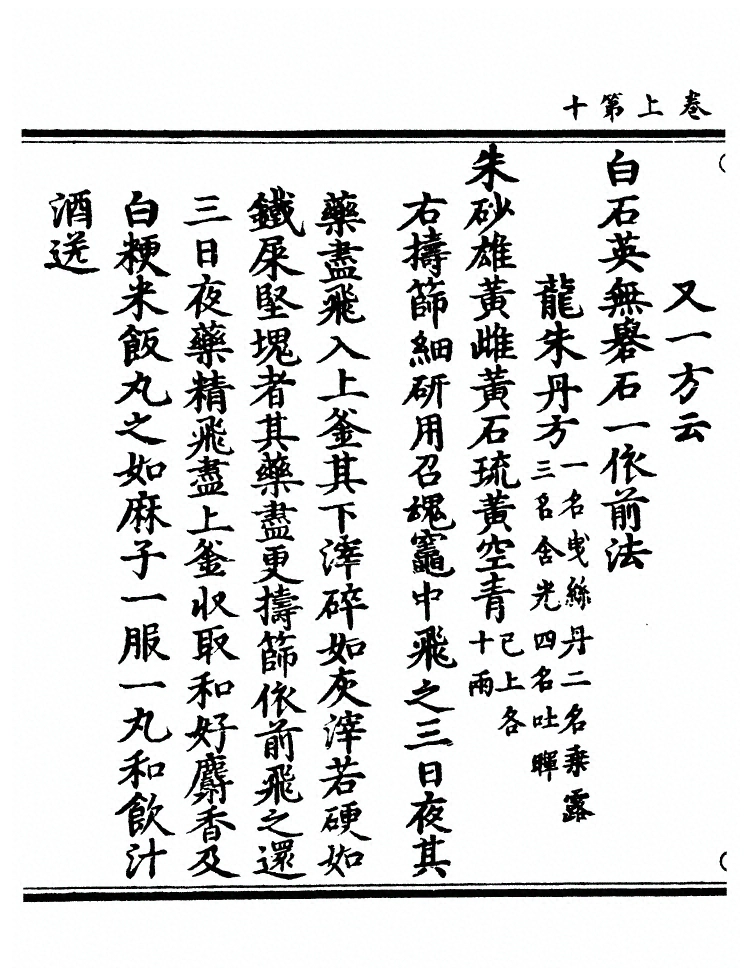 卷上第十
又一方云
白石英無礜石一依前法
龍朱丹方一名曳絲丹二名乘露三名含光四名吐暉
朱砂雄黃雌黃石琉黃空青已上各十兩
右擣篩細研用召魂竈中飛之三日夜其
藥盡飛入上釜其下滓碎如灰滓若硬如
鐵屎堅塊者其藥盡更擣篩依前飛之還
三日夜藥精飛盡上釜收取和好麝香及
白粳米飯丸之如麻子一服一丸和飲汁
酒送